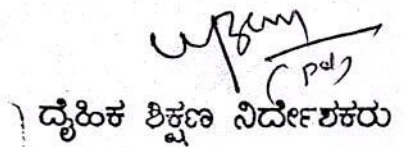 (pd)
ದೈಹಿಕ ಶಿಕ್ಷಣ ನಿರ್ದೇಶಕರು